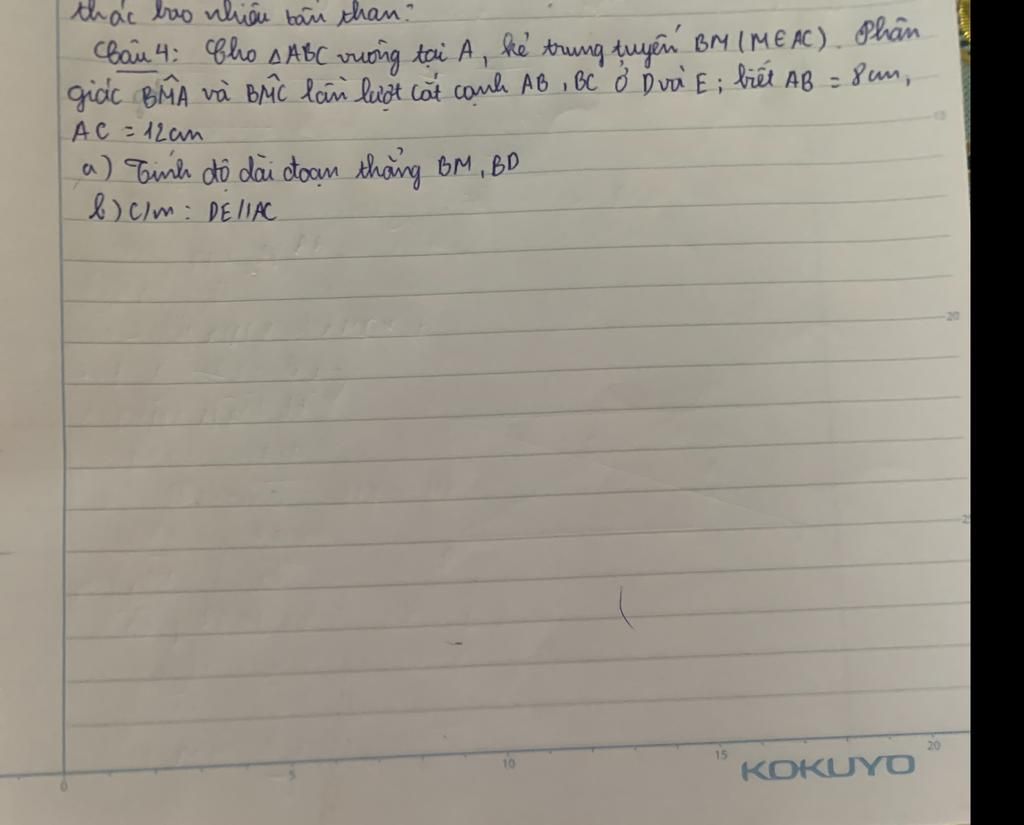 thác bao nhiêu tấn than?
Câu 4: Cho △ABC vuông tại A, kẻ trung tuyến BM (M∈AC). Phân
giác BM̂A và BM̂C lần lượt cắt cạnh AB, BC ở D và E; biết AB = 8cm,
AC = 12cm
a) Tính độ dài đoạn thẳng BM, BD
b) C/m: DE//AC
15
20
25
0 5 10 15 20
KOKUYO